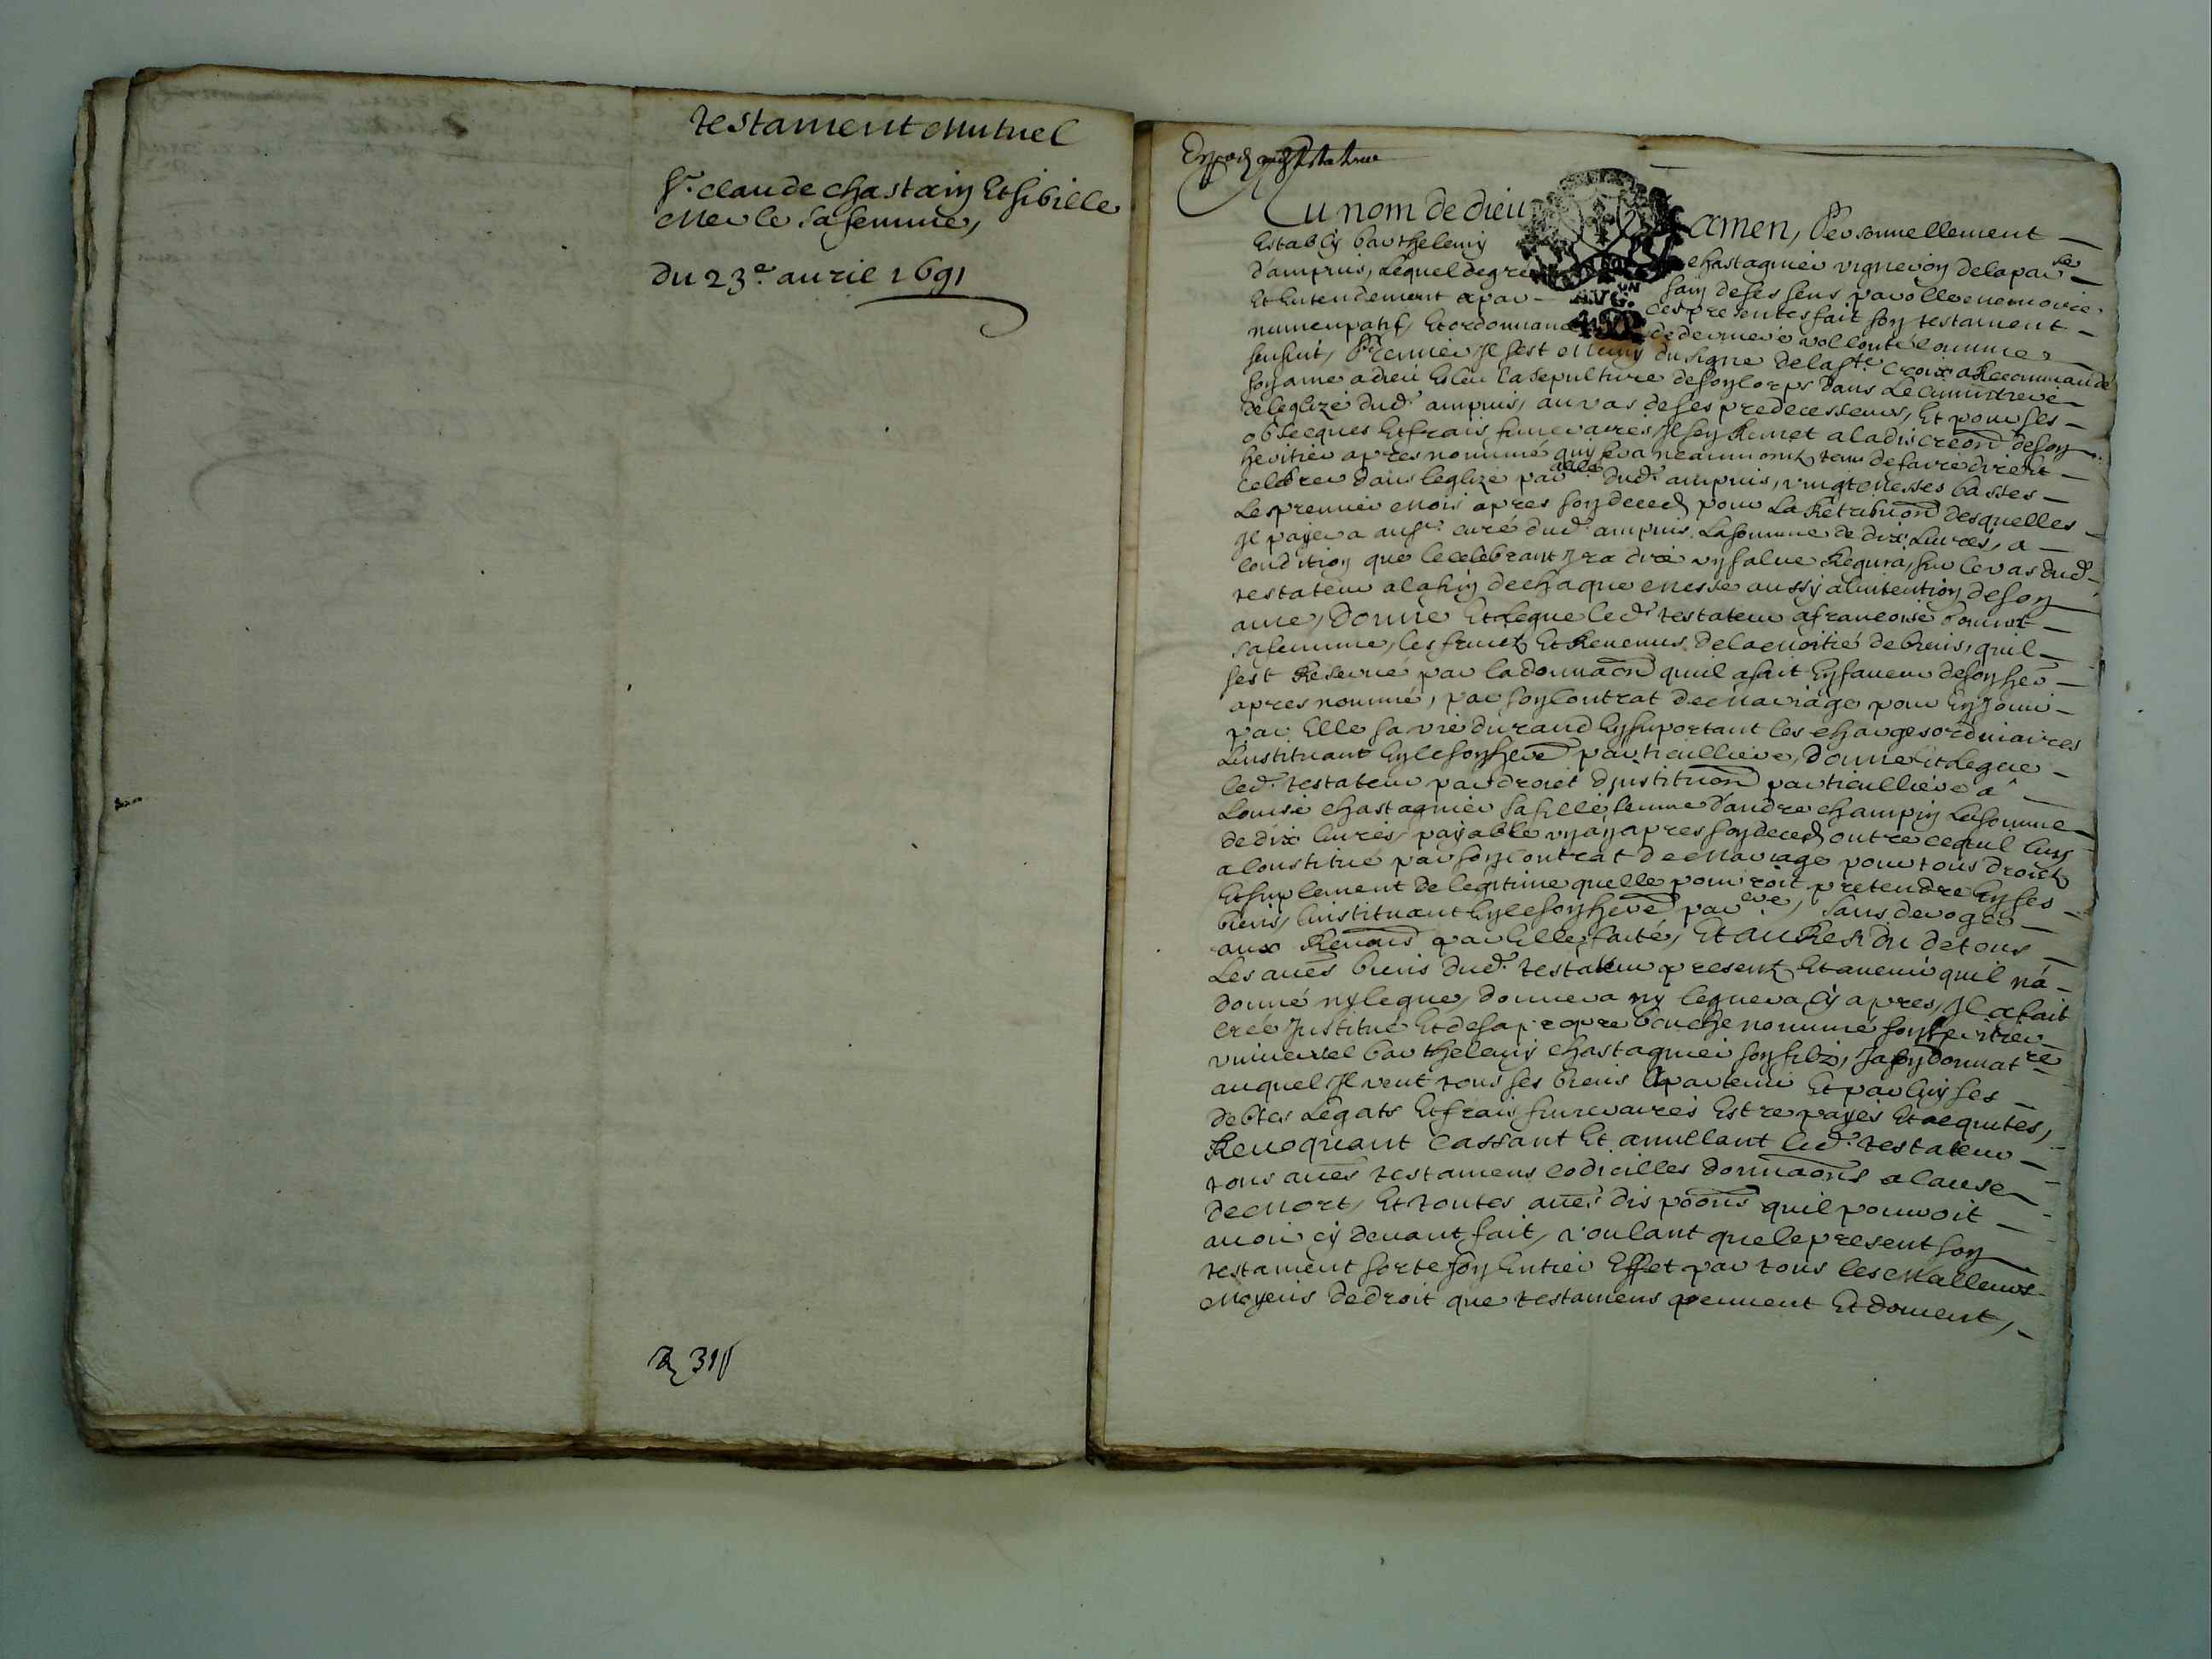 testament Mutuel
Sr. claude chastain Et sibille
Merle sa femme,
du 23e. auril 1691
Au nom de dieu amen, Personnellement
Estably barthelemy chastagnier vigneron de la parsse
d'ampuis, Lequel de gré sain de ses sens parolle memoire
Et Entendement a par ces presentes fait son testament
nuncupatif, Et ordonnance de derniere vollonté comme
sensuit, Premier, Il sest Muny du signe de la ste croix a Recommandé
son ame a dieu Esleu la sepulture de son corps dans Le cimittiere
de leglize dud. ampuis, au vas de ses predecesseurs, Et pour ses
obseques Et frais funeraires Il sen Remet a la discreon de son
heritier apres nommé quy sera neanmoins tenu de faire dire Et
celebrer dans leglize paralle dud. ampuis, vingt Messes basses
Les premier Mois apres son deced pour La Retribuon desquelles
Il payera au sr. curé dud. ampuis La somme de dix Liures, a
condition que le celebrant Ira dire un salue Regina, sur le vas dud.
testateur a la fin de chaque Messe aussy a lintention de son
ame, Donne Et Legue led. testateur a francoise
sa femme, les fruictz Et Reuenus de la Moitié de biens, quil
sest Reserué par la donnaon quil a fait En faueur de son her
apres nommé, par son contrat de Mariage pour En Jouir
par Elle sa vie durand En suportant les charges ordinaires
Linstituant En ce son here particulliere, donne Et Legue
led. testateur par droict dinstituon particulliere a
Louise chastagnier sa fille femme d'andre champin La somme
de dix liures, payable un an apres son deced outre ce quil luy
a constitué par son contrat de Mariage pour tous droictz
Et suplement de legitime quelle pourroit pretendre En ses
biens, Linstituant En ce son here parere, sans deroger
aux Renons par Elle faite, Et au Residu de tous
Les aues biens dud. testateur presentz Et auenir quil na
donné ny legué, donnera ny leguera cy apres, Il a fait
créé Institué Et de sa propre bouche nommé son heritier
vniuersel barthelemy chastagnier son filz, Ja son donnatre
auquel Il veut tous ses biens apartenir Et par luy ses
debtes Legats Et frais funeraires Estre payés Et acquités,
Reuoquant cassant Et anullant led. testateur
tous aues testamens codicilles donnaons a cause
de Mort, Et toutes aues dispoons quil pouuoit
auoir cy deuant fait, voulant que le present son
testament sorte son Entier Effet par tous les Malleurs
Moyens de droit que testamens peuuent Et doiuent,